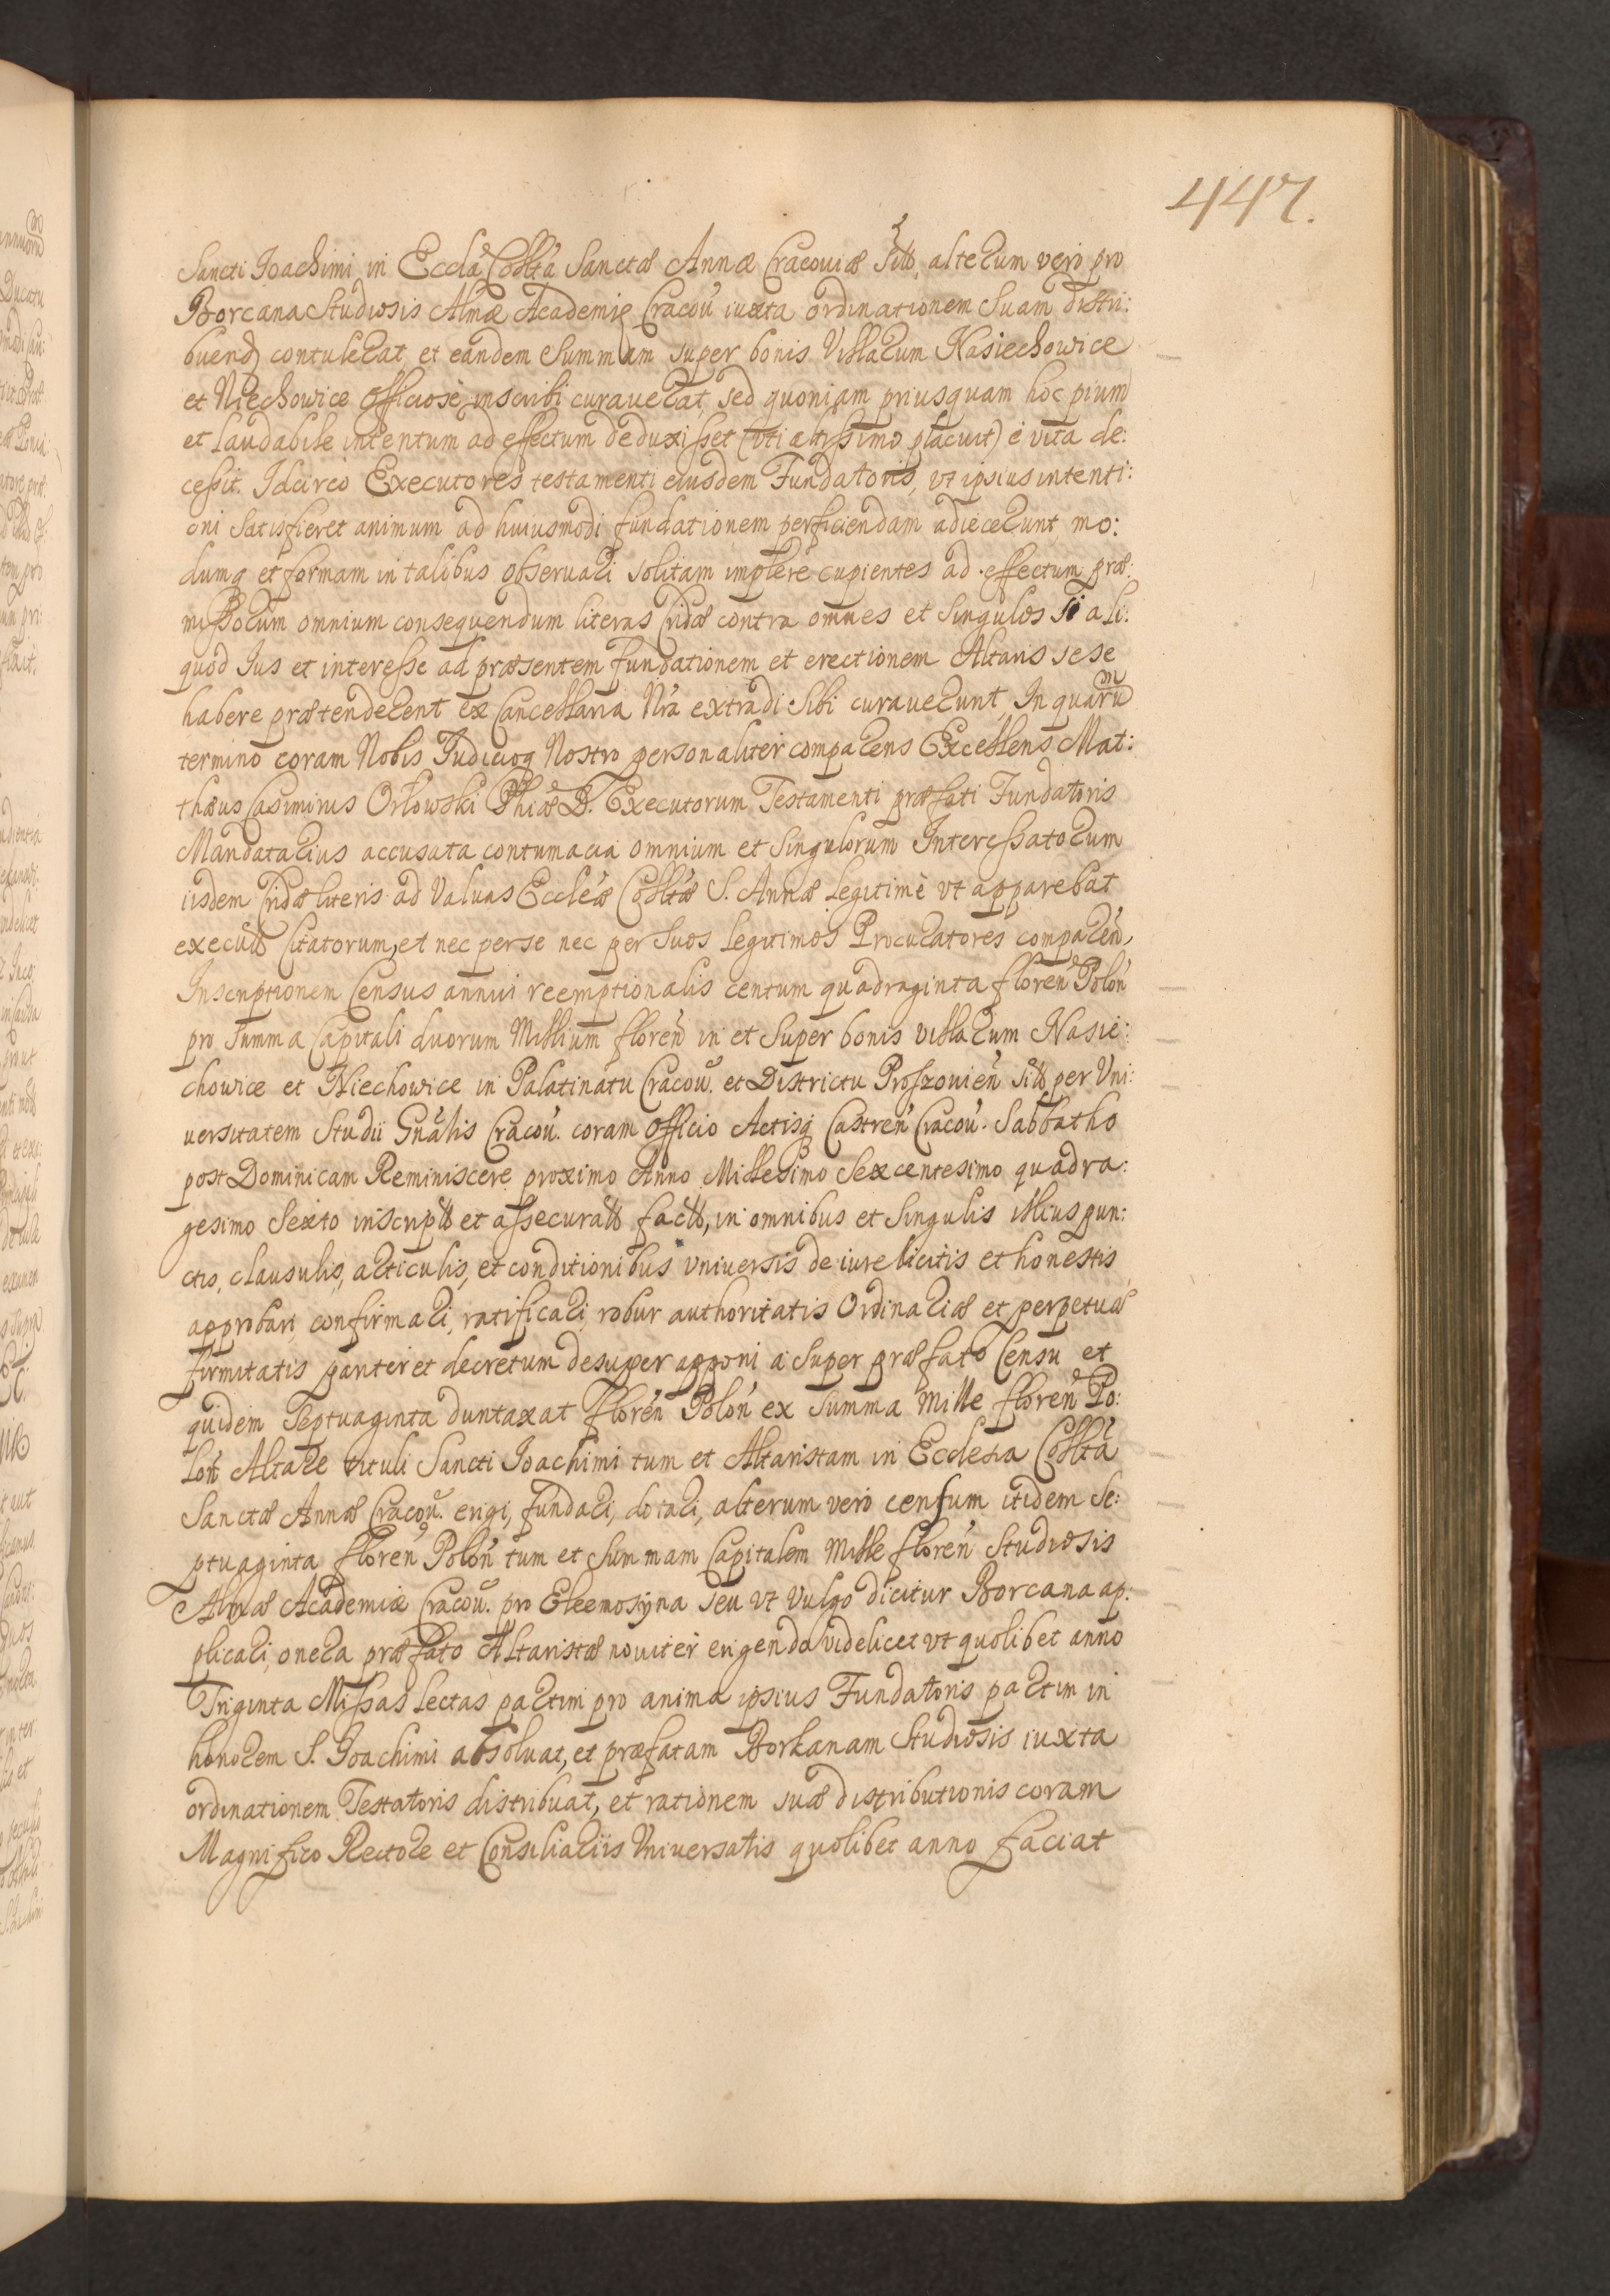 447.
Sancti Joachimi in Eccla Collta Sanctæ Annæ Cracoviæ sito, alterum vero pro
Borcana Studiosis Almæ Academię Cracou iuxta ordinationem Suam distri:
buend contulerat et eandem Summam super bonis Villarum Nasiechowice
et Niechowice officiose inscribi curauerat, sed quoniam priusquam hoc pium
et laudabile intentum ad effectum deduxisset (uti altissimo placuit) e vita de:
cessit. Idcirco Executores testamenti eiusdem Fundatoris, vt ipsius intenti:
oni Satisfieret animum ad huiusmodi fundationem perficiendam adiecerunt, mo:
dumq et formam in talibus observari solitam implere cupientes ad effectum præ:
missorum omnium consequendum literas Cridæ contra omnes et Singulos si ali:
quod Jus et interesse ad præsentem fundationem et erectionem Altaris sese
habere prætenderent ex Cancellaria Nra extradi Sibi curauerunt, In quarum
termino coram Nobis Judicioq Nostro personaliter comparens Excellens Mat:
thæus Casimirus Orłowski Phiæ D. Executorum Testamenti præfati Fundatoris
Mandatarius accusata contumacia omnium et Singulorum Interessatorum
iisdem Cridæ literis ad Valuas Eccleæ Colltæ S. Annæ legitimè vt apparebat
execut Citatorum, et nec per se nec per Suos legitimos Procuratores comparen,
Inscriptionem Census annui reemptionalis centum quadraginta floren Polon
pro Summa Capitali duorum Millium floren in et Super bonis villarum Nasie:
chowice et Niechowice in Palatinatu Cracou. et Districtu Proszouien sito per Vni:
uersitatem Studii Gnalis Cracou. coram officio Actisq Castren Cracou. Sabbatho
post Dominicam Reminiscere proximo Anno Millesimo Sexcentesimo quadra:
gesimo Sexto inscripto et assecurato facto, in omnibus et Singulis illius pun:
ctis, clausulis, articulis, et conditionibus vniuersis de iure licitis et honestis
approbari, confirmari, ratificari, robur authoritatis Ordinariæ et perpetuæ
firmitatis pariter et decretum desuper apponi a Super præfato Censu et
quidem Septuaginta duntaxat floren Polon ex Summa Mille floren Po:
lon Altare tituli Sancti Joachimi tum et Altaristam in Ecclesia Collta
Sanctæ Annæ Cracou. erigi, fundari, dotari, alterum vero censum itidem Se:
ptuaginta floren Polon tum et Summam Capitalem Mille floren Studiosis
Almæ Academiæ Cracou. pro Eleemosyna seu vt vulgo dicitur Borcana ap:
plicari, onera præfato Altaristæ nouiter erigendo videlicet vt quolibet anno
Triginta Missas lectas partim pro anima ipsius Fundatoris partim in
honorem S. Joachimi absoluat, et præfatam Borkanam Studiosis iuxta
ordinationem Testatoris distribuat, et rationem suæ distributionis coram
Magnifico Rectore et Consiliariis Vniuersatis quolibet anno faciat